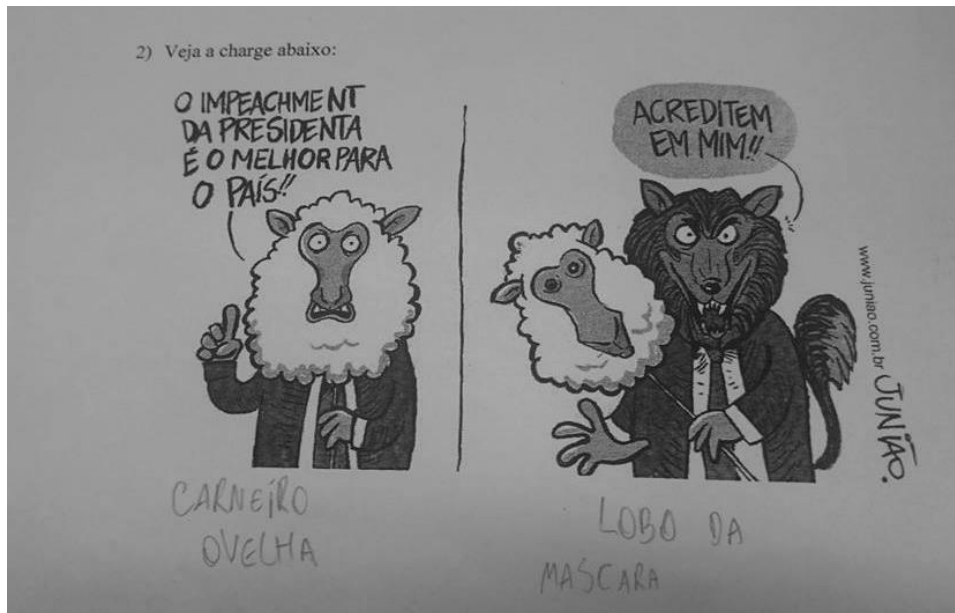 2) Veja a charge abaixo:
O IMPEACHMENT
DA PRESIDENTA
É O MELHOR PARA
O PAÍS!!
ACREDITEM
EM MIM!!
www.juniao.com.br JUNIÃO.
CARNEÍRO
OVELHA
LOBO DA
MASCARA